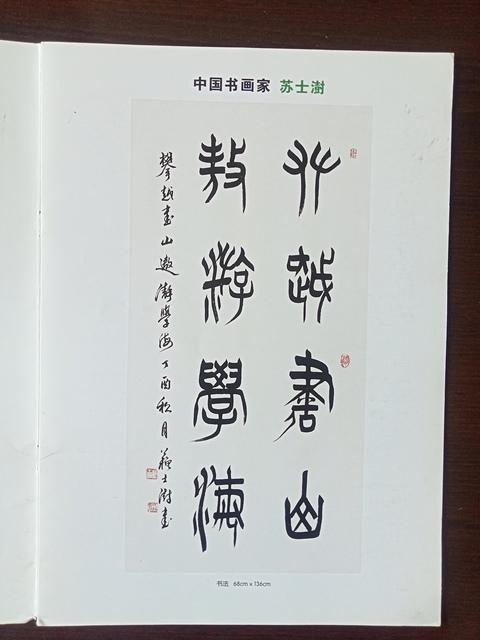 中国书画家 苏士澍
攀越書山
敖游學海
攀越書山遨游學海丁酉秋月蘇士澍書
书法 68cm×136cm